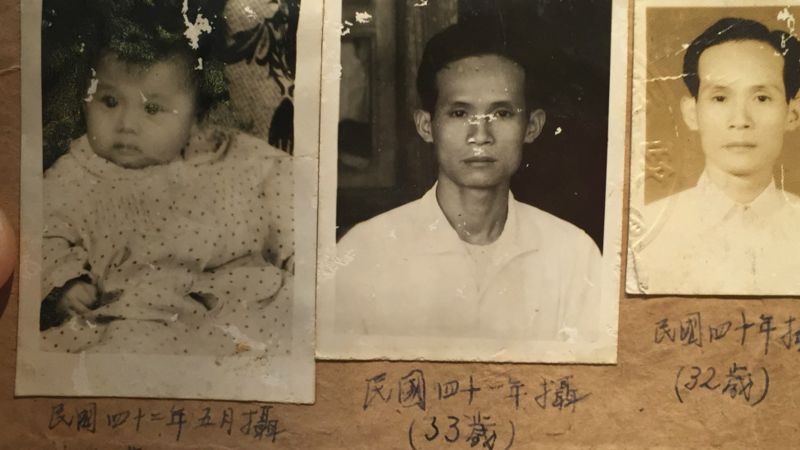 民國四十二年五月攝
民國四十一年攝
(33歲)
民國四十年攝
(32歲)